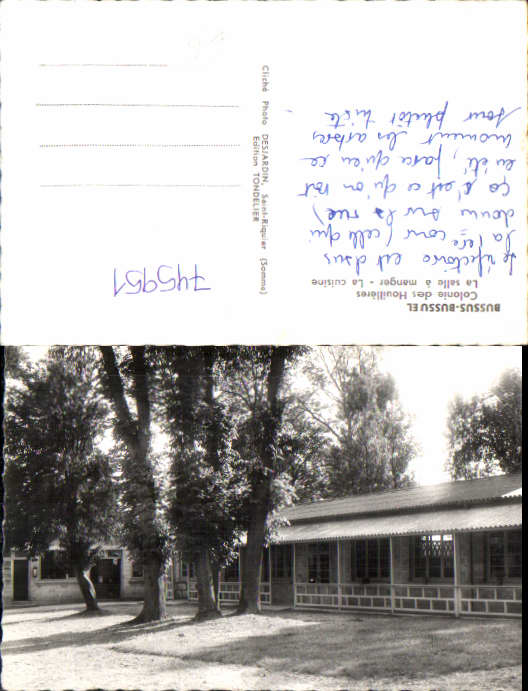 BUSSUS-BUSSUEL
Colonie des Houillères
La salle à manger - La cuisine
le réfectoire est dans
la 1ère cour (celle qui
donne sur la rue)
ça c'est ce qu'on voit
en été, parce qu'en ce
moment les arbres
sont plutôt triste
Cliché Photo DESJARDIN, Saint-Riquier (Somme)
Edition TONDELIER
745951